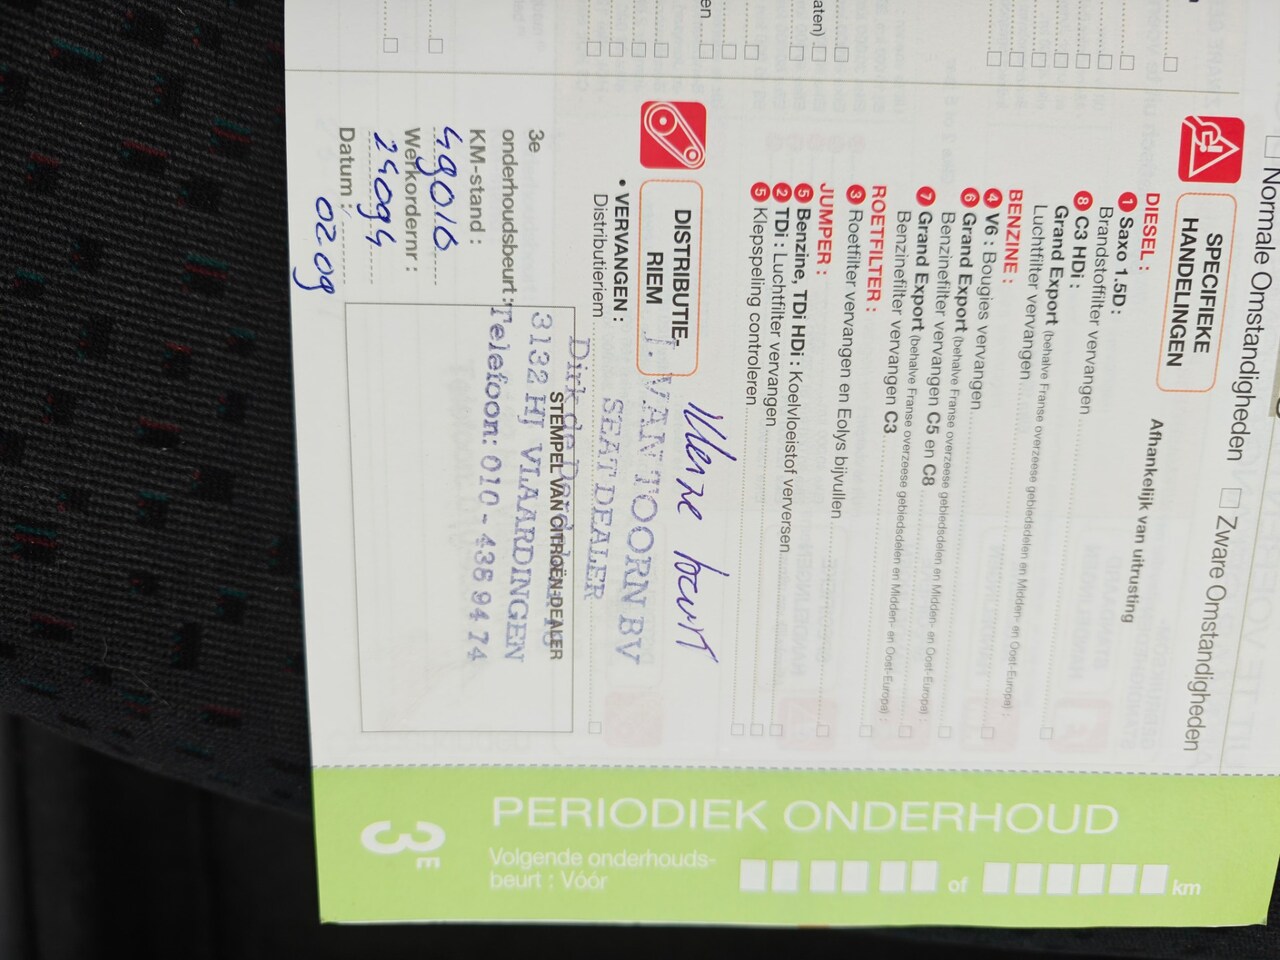 Normale Omstandigheden
Zware Omstandigheden
SPECIFIEKE
HANDELINGEN
Afhankelijk van uitrusting
DIESEL :
1 Saxo 1.5D :
Brandstoffilter vervangen
8 C3 HDi :
Grand Export (behalve Franse overzeese gebiedsdelen en Midden- en Oost-Europa) :
Luchtfilter vervangen
BENZINE :
4 V6 : Bougies vervangen
6 Grand Export (behalve Franse overzeese gebiedsdelen en Midden- en Oost-Europa) :
Benzinefilter vervangen C5 en C8
7 Grand Export (behalve Franse overzeese gebiedsdelen en Midden- en Oost-Europa) :
Benzinefilter vervangen C3
ROETFILTER :
3 Roetfilter vervangen en Eolys bijvullen
JUMPER :
5 Benzine, TDi HDi : Koelvloeistof verversen
2 TDi : Luchtfilter vervangen
5 Klepspeling controleren
DISTRIBUTIE-
RIEM
• VERVANGEN :
Distributieriem
VAN TOORN BV
SEAT DEALER
Dirk de
3132 HJ VLAARDINGEN
Telefoon: 010 - 436 94 74
STEMPEL VAN CITROËN-DEALER
3e
onderhoudsbeurt :
KM-stand :
49016
Werkordernr :
Datum :
02 09
PERIODIEK ONDERHOUD
3E
Volgende onderhouds-
beurt : Vóór
of
km
aten)
en